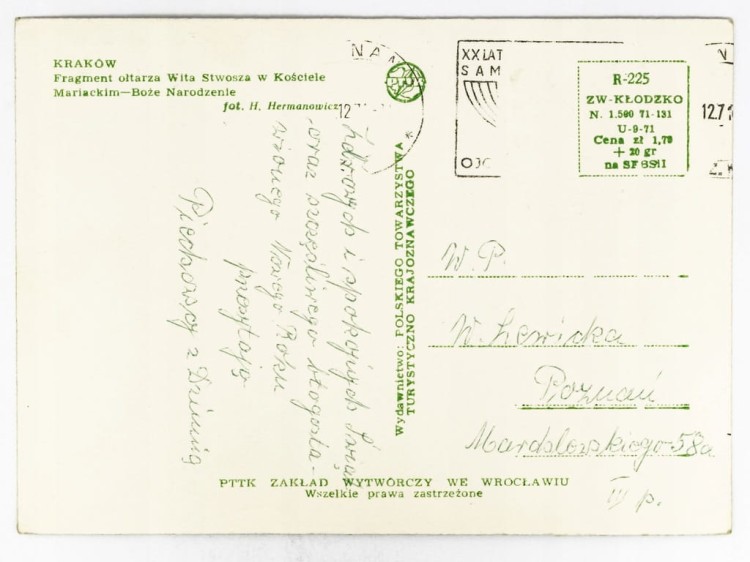 KRAKÓW
Fragment ołtarza Wita Stwosza w Kościele
Mariackim—Boże Narodzenie
fot. H. Hermanowicz
Zdrowych i spokojnych Świąt
oraz szczęśliwego błogosła-
wionego Nowego Roku
przesyłają
Piechowscy z
Wydawnictwo: POLSKIEGO TOWARZYSTWA
TURYSTYCZNO KRAJOZNAWCZEGO
XX LAT
SAM
R-225
ZW-KŁODZKO
N. 1.500 71-131
U-9-71
Cena zł 1,70
+ 20 gr
na SFBSiI
W.P.
W. Lewicka
Poznań
58a
IV p.
PTTK ZAKŁAD WYTWÓRCZY WE WROCŁAWIU
Wszelkie prawa zastrzeżone